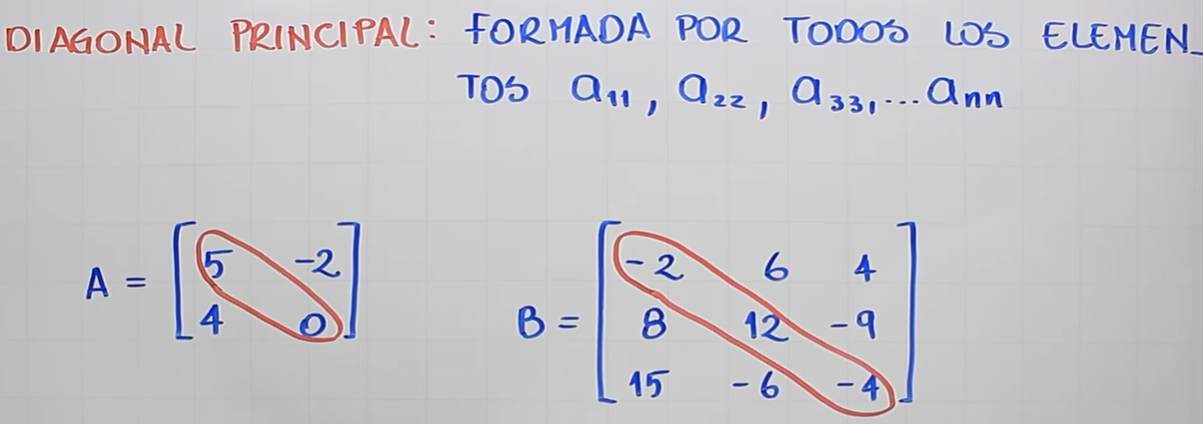 DIAGONAL PRINCIPAL: FORMADA POR TODOS LOS ELEMEN_
TOS a11, a22, a33,...ann
A = [5 -2
4 0]
B = [-2 6 4
8 12 -9
15 -6 -4]